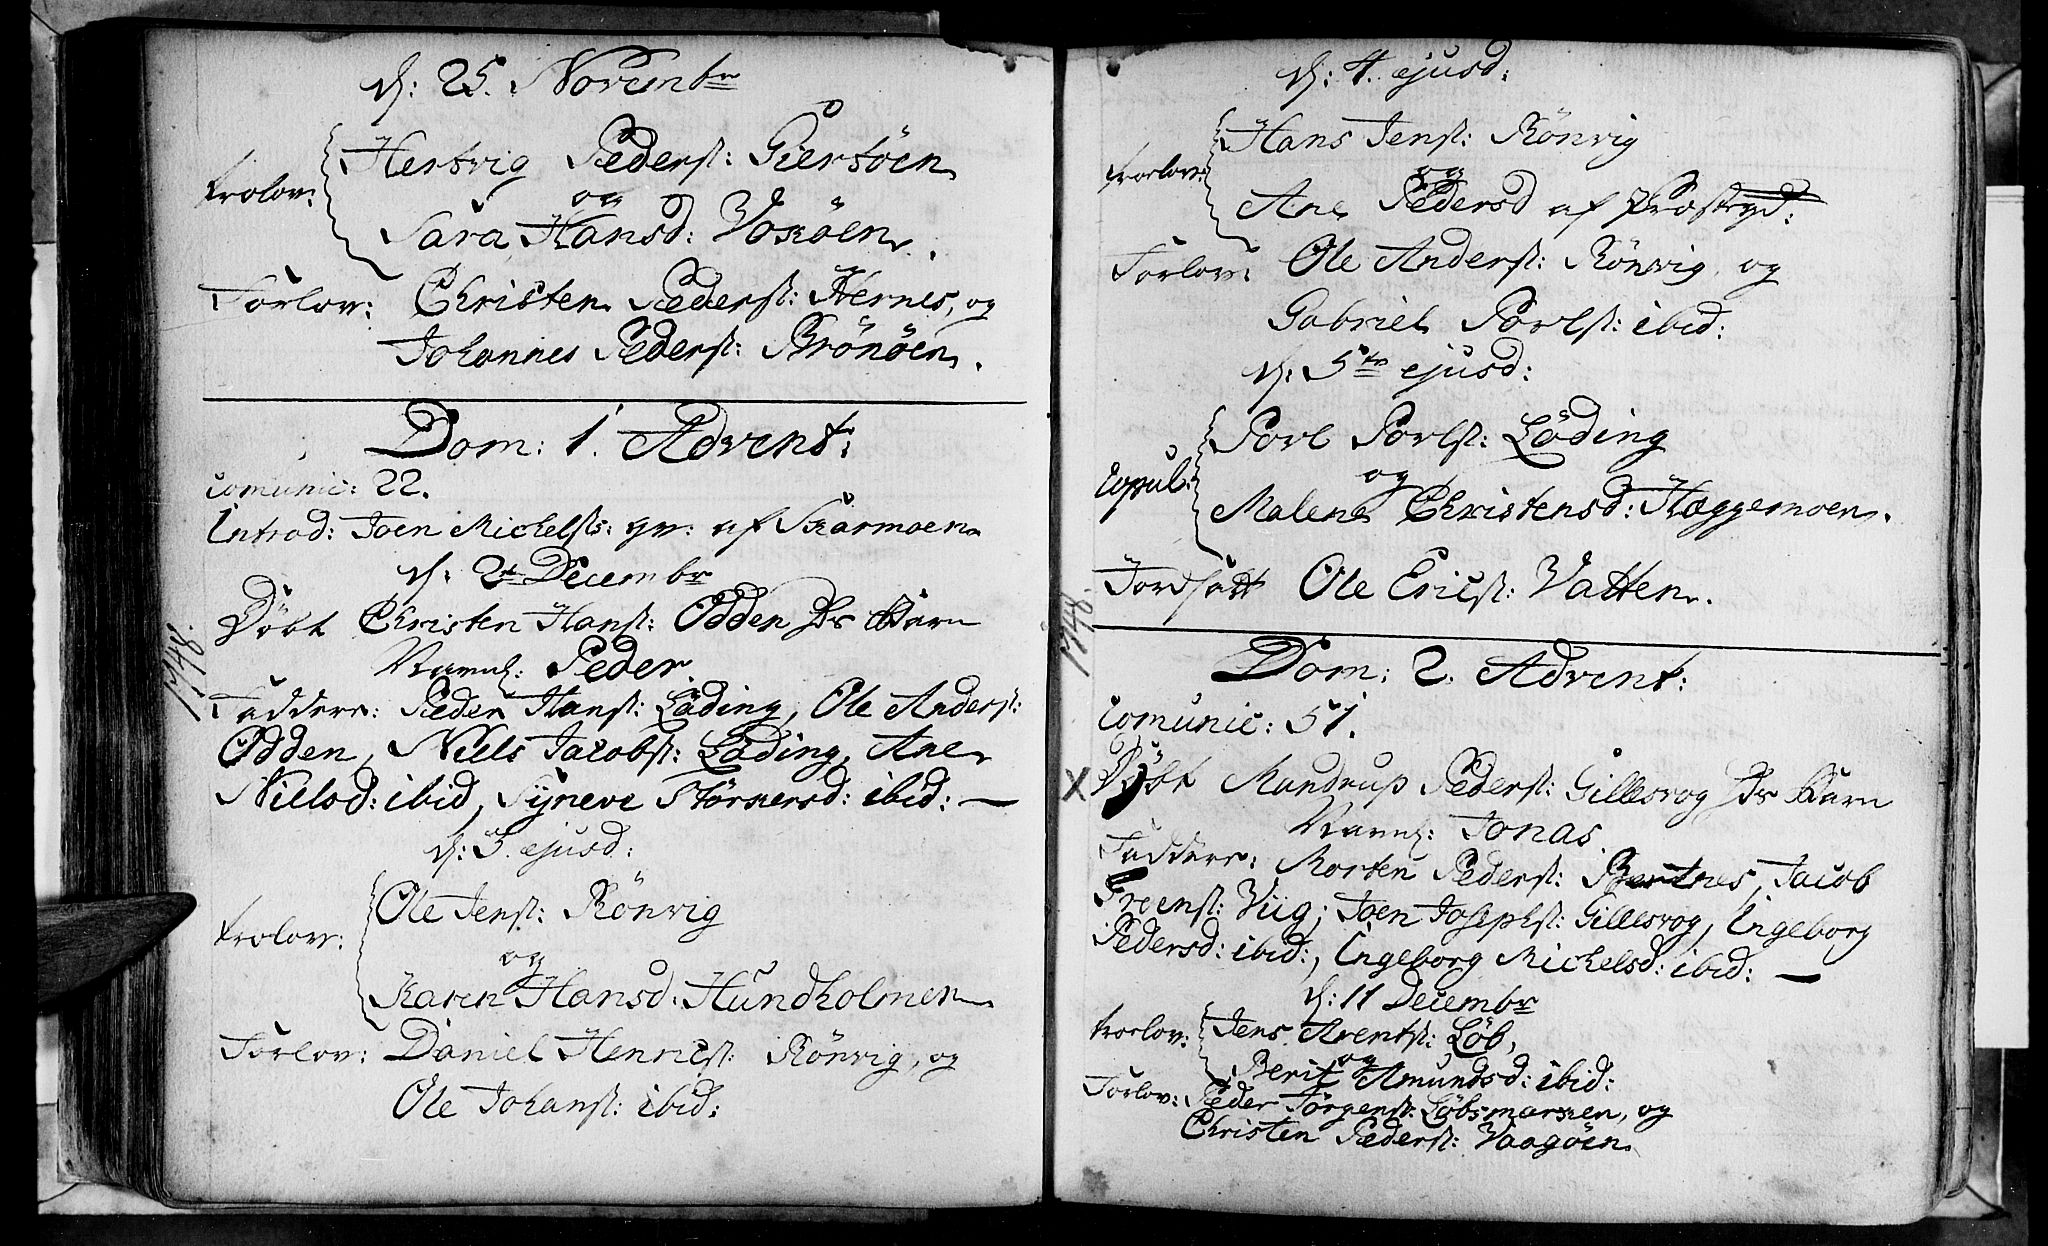 d: 25. Novembr
trolov: Hertvig Pederst: Giertöen
og
Sara Hansd: Voxöen.
Forlov: Christen Pederst: Hernes, og
Johannes Pederst: Brönöen.
Dom: 1. Advent:
comunic: 22.
Introd: Joen Michelsts: qv: af Skarmoen
d: 2t Decembr
Döbt Christen Hanst: Odden Ds Barn
Navnl: Peder.
1748.
Faddere: Peder Hanst: Löding, Ole Anderst:
Odden, Niels Jacobst: Löding, Ane
Nielsd: ibid, Syneve Störkersd: ibid: —
d: 3. ejusd:
trolov: Ole Jenst: Rönvig
og
Karen Hansd: Hundholmen
Forlov: Daniel Henricst: Rönvig, og
Ole Johanst: ibid:
d: 4. ejusd:
trolov: Hans Jenst: Rönvig
og
Ane Pedersd af
Forlov: Ole Anderst: Rönvig, og
Gabriel Povlst: ibid:
d: 5te ejusd:
copul: Povl Povlst: Löding
og
Malene Christensd: Hoggemoen.
Jordsatt Ole Ericst: Vatten.
1748.
Dom: 2. Advent:
comunic: 51.
X Döbt Mandrup Pederst: Gillesvog Ds Barn
Navnl: Jonas.
Faddere: Morten Pederst: Bertnes, Jacob
Ireenst: Viig, Joen Josephst: Gillesvog, Ingeborg
Pedersd: ibid:, Ingeborg Michelsd: ibid: —
d: 11 Decembr
trolov: Jens Arentst: Löb,
og
Berit Amundsd: ibid:
Forlov: Peder Jörgenst: Löbsmarken, og
Christen Pederst: Vaagöen.